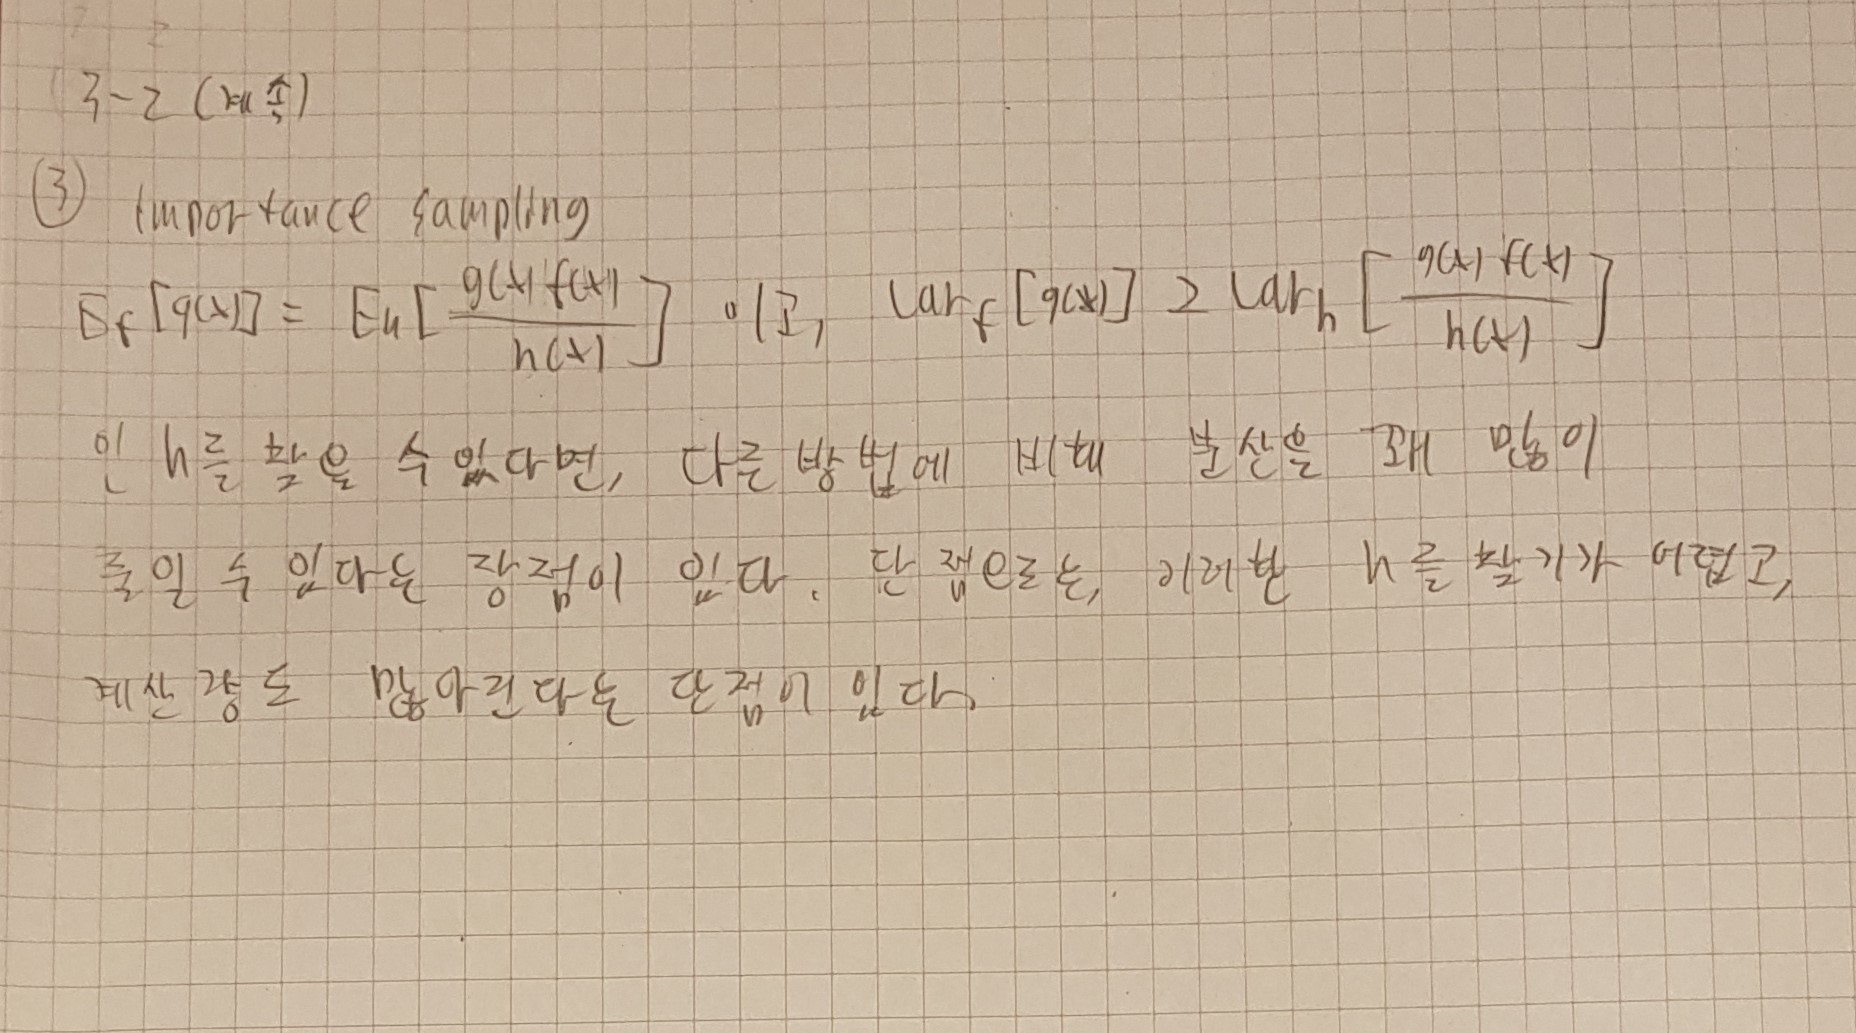 3-2 (계속)
③ importance sampling
E_f[g(x)] = E_h[g(x)f(x)/h(x)] 이고, Var_f[g(x)] ≥ Var_h[g(x)f(x)/h(x)]
인 h를 찾을 수 있다면, 다른 방법에 비해 분산을 꽤 많이
줄일 수 있다는 장점이 있다. 단점으로는, 이러한 h를 찾기가 어렵고,
계산량도 많아진다는 단점이 있다.